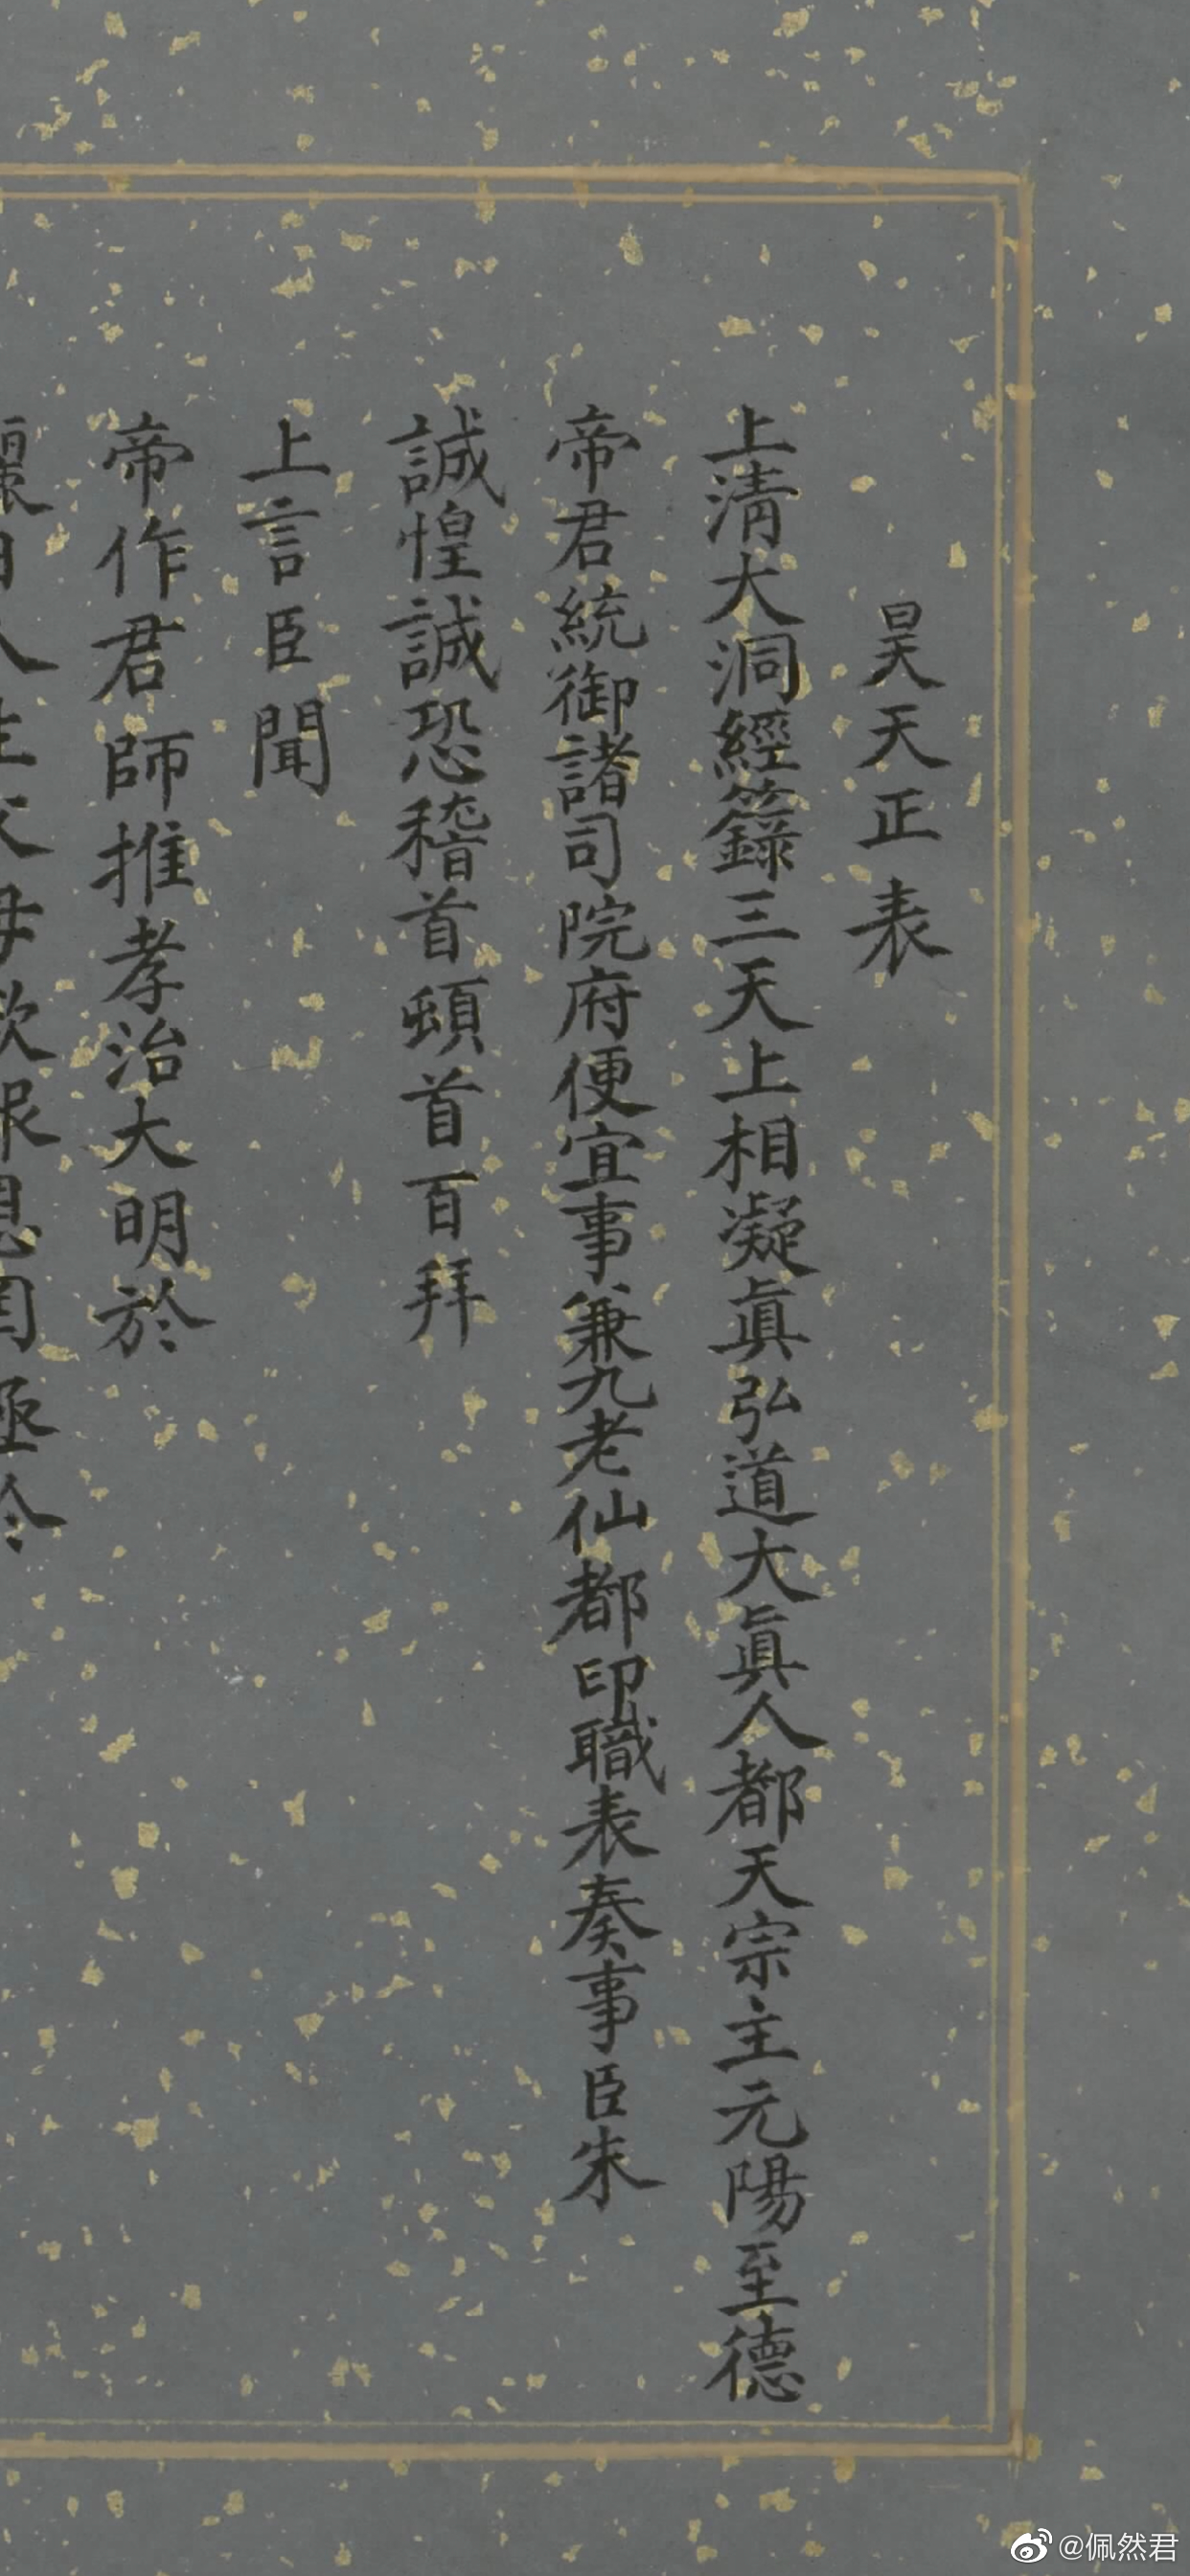 昊天正表
上清大洞經籙三天上相凝眞弘道大眞人都天宗主元陽至德
帝君統御諸司院府便宜事兼九老仙都印職表奏事臣朱
誠惶誠恐稽首頓首百拜
上言臣聞
帝作君師推孝治大明於
人生父母欲報恩罔極於
@佩然君